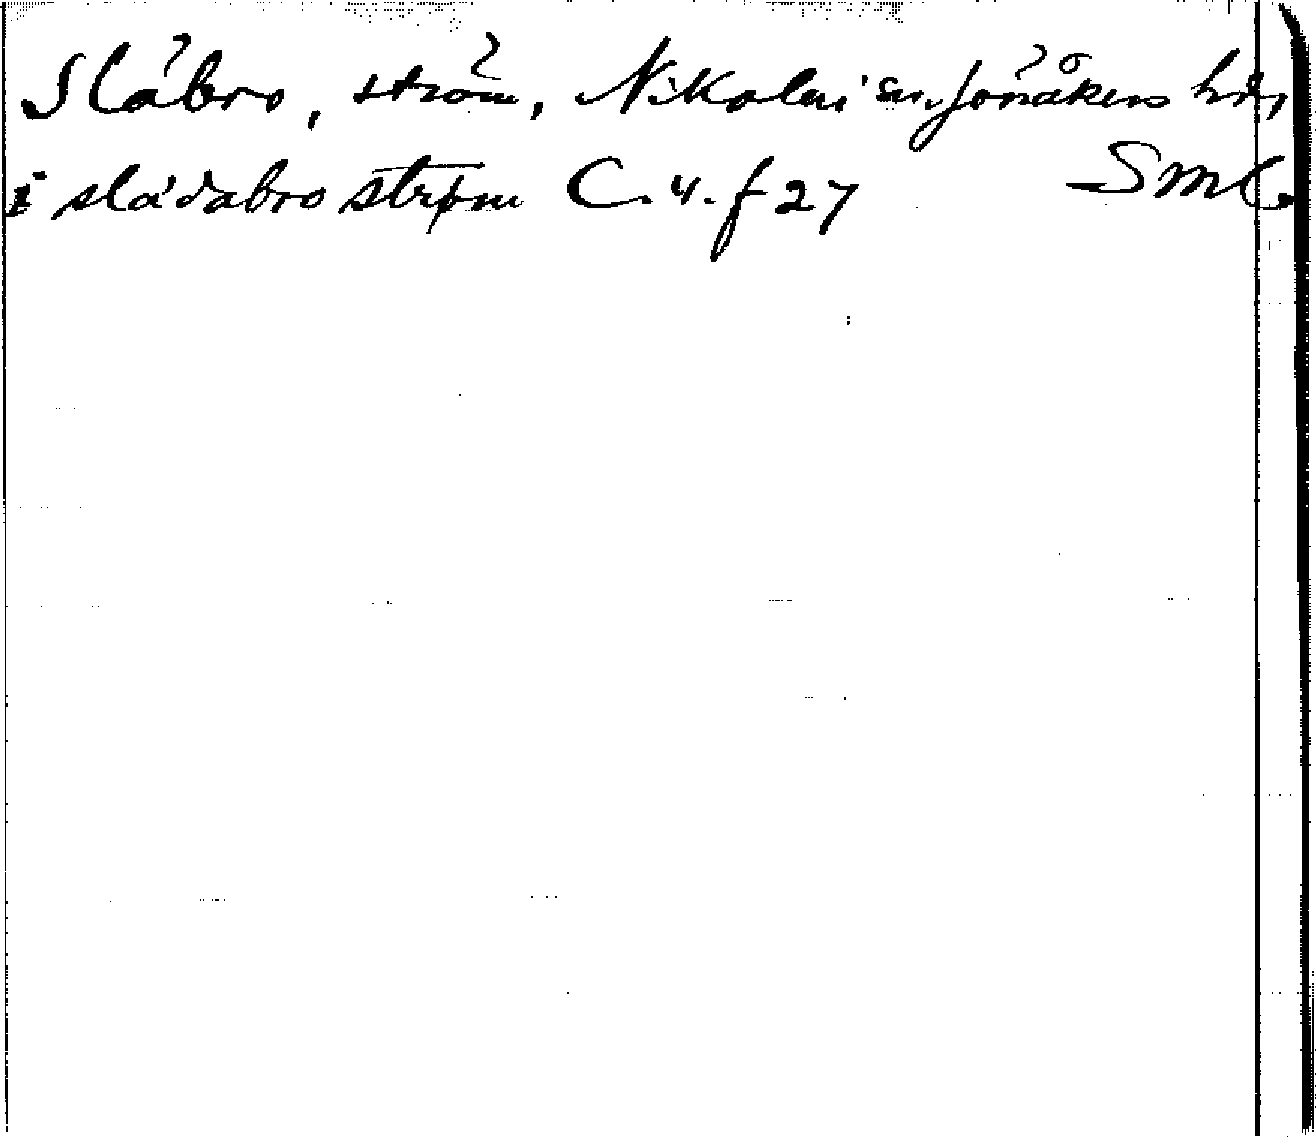 Slåbro, ström, Nikolai sn, Jönåkers hd,
i sladabro strøm C. 4. f 27 Sml.